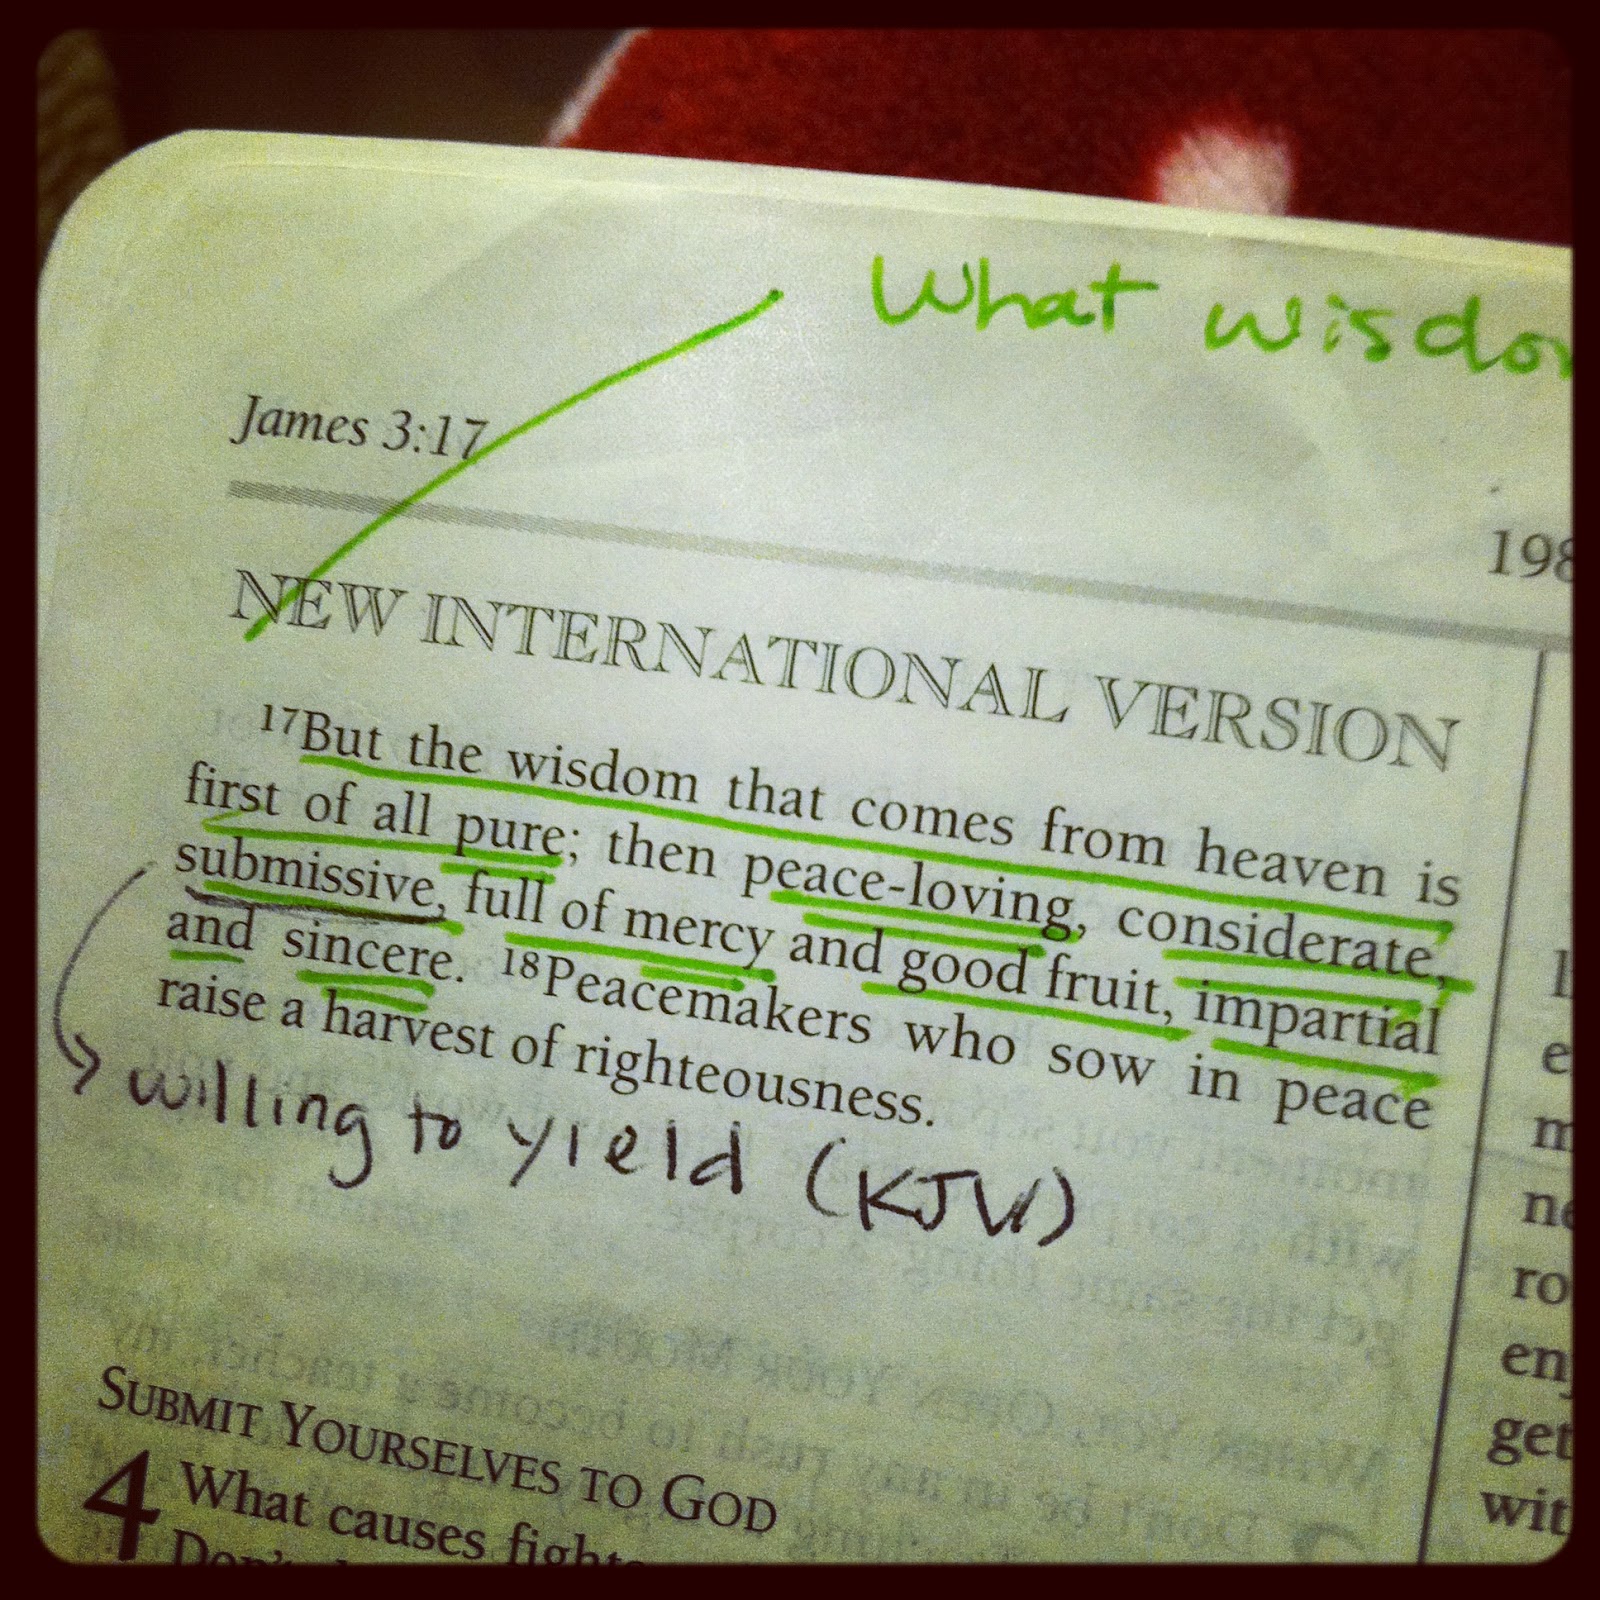 What wisdo
James 3:17
198
NEW INTERNATIONAL VERSION
17But the wisdom that comes from heaven is
first of all pure; then peace-loving, considerate,
submissive, full of mercy and good fruit, impartial
and sincere. 18Peacemakers who sow in peace
raise a harvest of righteousness.
willing to yield (KJV)
SUBMIT YOURSELVES TO GOD
4 What causes fights
e
m
ne
ro
en
get
wit